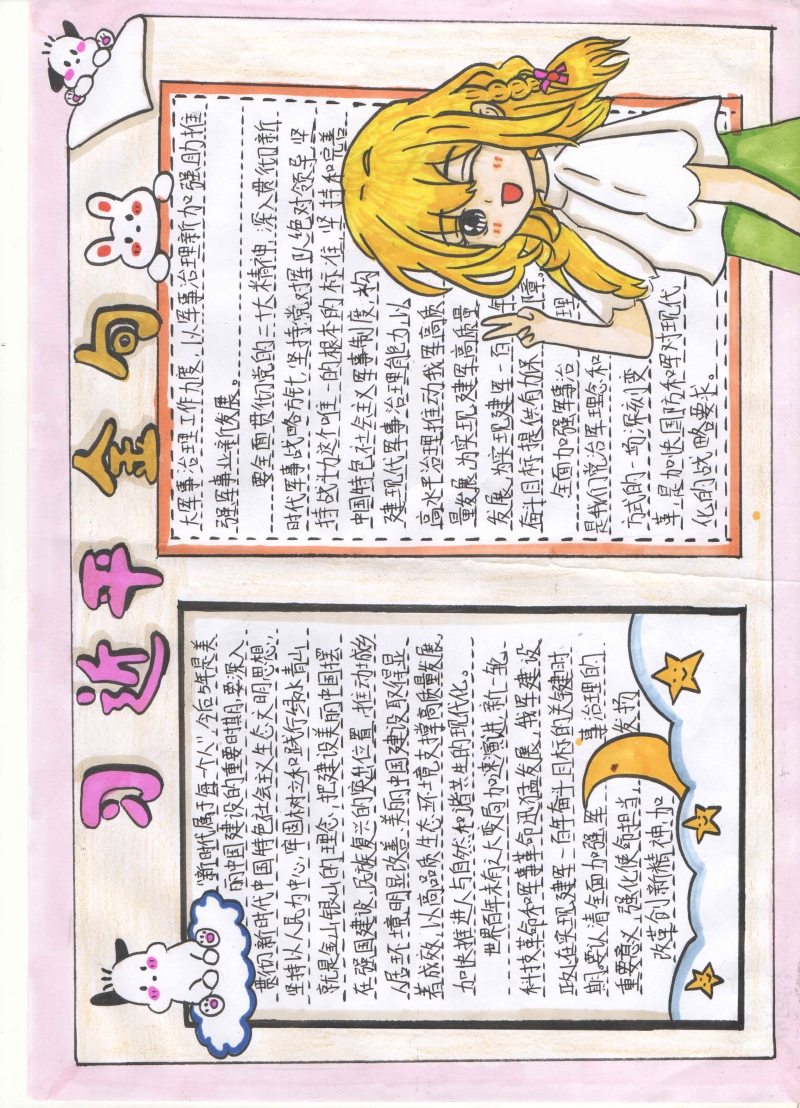 习近平金句
"新时代属于每一个人"今后5年是美
丽中国建设的重要时期,要深入
贯彻新时代中国特色社会主义生态文明思想,
坚持以人民为中心,牢固树立和践行绿水青山
就是金山银山的理念,把建设美丽中国摆
在强国建设、民族复兴的突出位置,推动城乡
人居环境明显改善、美丽中国建设取得显
着成效,以高品质生态环境支撑高质量发展,
加快推进人与自然和谐共生的现代化。
世界百年未有之大变局加速演进,新一轮
科技革命和军事革命迅猛发展,我军建设
正处在实现建军一百年奋斗目标的关键时
期,要认清全面加强军事治理的
重要意义,强化使命担当,发扬
改革创新精神,加
大军事治理工作力度,以军事治理新加强助推
强军事业新发展。
要全面贯彻党的二十大精神,深入贯彻新
时代军事战略方针,坚持党对军队绝对领导,坚
持战斗力这个唯一的根本的标准,坚持和完善
中国特色社会主义军事制度,构
建现代军事治理能力,以
高水平治理推动我军高质
量发展,为实现建军高质量
发展,为实现建军一百年
奋斗目标提供有力保障。
全面加强军事治理
是我们党治军理念和
方式的一场深刻变
革,是加快国防和军队现代
化的战略要求。